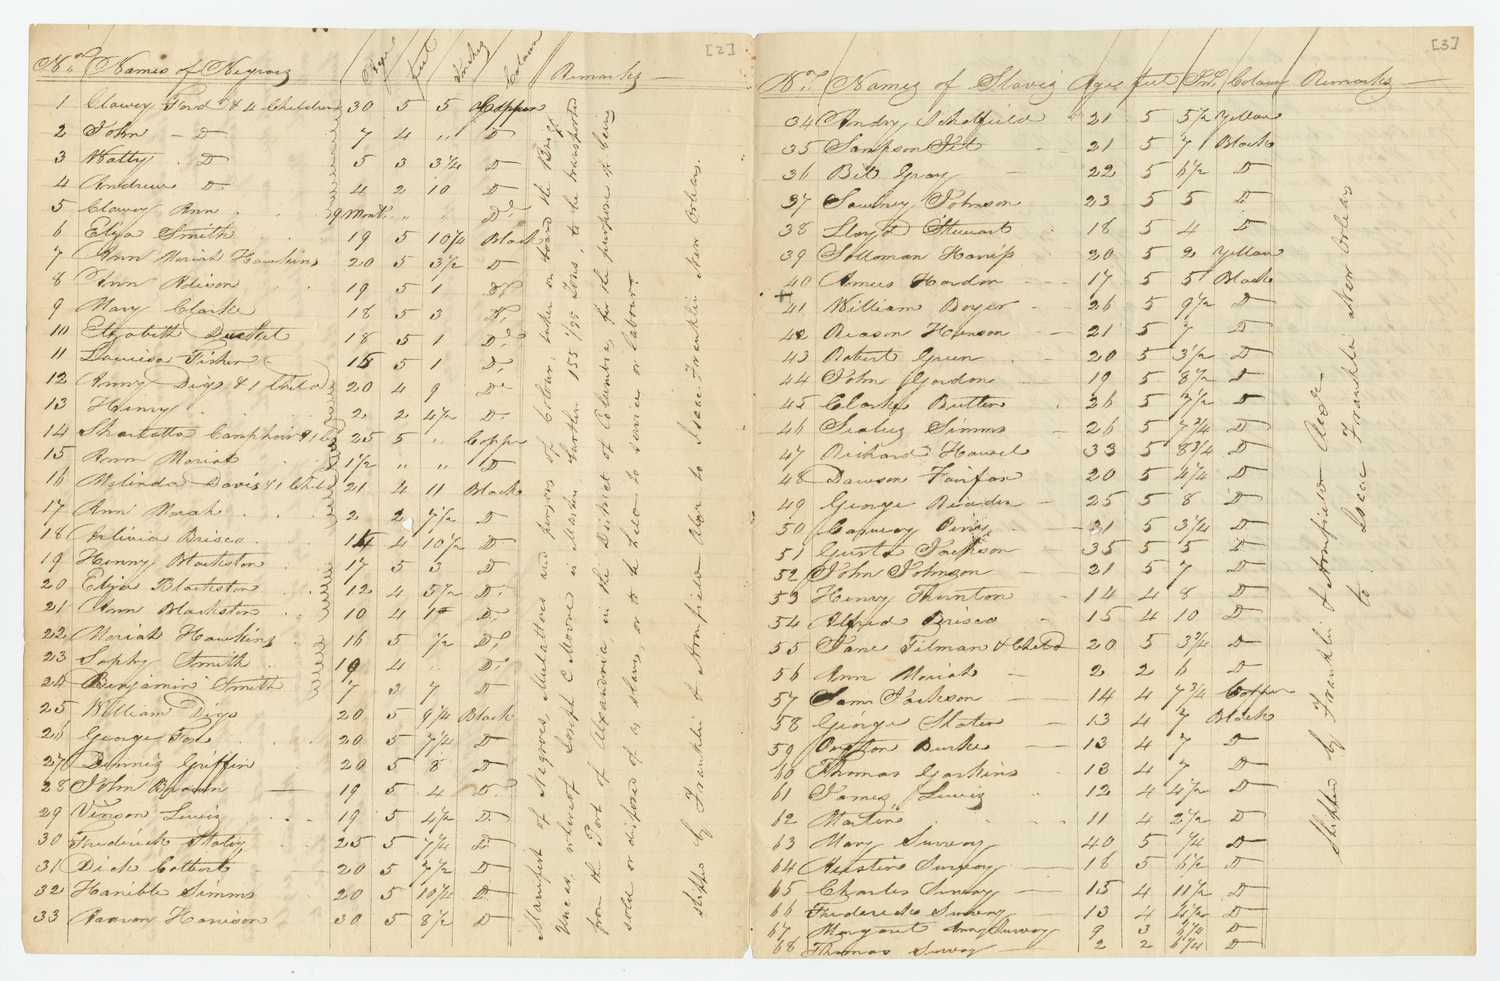 [2]
No. Names of Negroes Age feet Inches Colour Remarks
1 Clawey Ford & 4 Children 30 5 5 Copper
2 John - D 7 4 " D
3 Watty . D 5 3 3 1/4 D
4 Andrew D. 4 2 10 D
5 Clawey Ann 9 Mont. " " Do.
6 Eliza Smith 19 5 10 1/4 Black
7 Ann Moriah Hawkins 20 5 3 1/2 D
8 Ann 19 5 1 Do.
9 Mary Clarke 18 5 3 Do.
10 Elizabeth Ducket 18 5 1 Do.
11 Fisher 15 5 1 D.
12 Anny Digs & 1 Child 20 4 9 Do
13 Henry 2 2 4 1/2 D.
14 & 1 25 5 " Copper
15 Ann Moriah 1 1/2 " " D
16 Melinda Davis & 1 Child 21 4 11 Black
17 Ann Norah 2 2 7 1/2 D
18 Brisco 14 4 10 1/2 D
19 Henny Blackston 17 5 3 D
20 Eliza Blackston 12 4 5 1/2 D.
21 Ann Blackston 10 4 D.
22 Moriah Hawkins 16 5 1/2 Do.
23 Sophy Smith 19 4 " D.
24 Benjamin Smith 7 3 7 D
25 William Digs 20 5 9 1/4 Black
26 George Fox 20 5 7 1/4 D
27 Dennis Griffin 20 5 8 D
28 John Brown 19 5 4 Do.
29 Vinson Lewis 19 5 4 1/2 D.
30 Frederick 25 5 7 1/4 D
31 Dick Colbert 20 5 7 1/2 D
32 Hanible Simms 20 5 10 1/4 D
33 Harrison 30 5 8 1/2 D
Manifest of Negroes, Mulattoes and persons of Colour, taken on board the Brig
Uncas, whereof Joseph C Moore is Master burthen 155 1/95 Tons, to be transported
from the Port of Alexandria, in the District of Columbia, for the purpose of being
sold or disposed of as slaves, or to be held to service or labour.
Shipped by Franklin & Armfield Alex to Isaac Franklin New Orleans.
[3]
No. Names of Slaves Ages feet In. Colour Remarks
34 Andry Scholfield 21 5 5 1/2 Yellow
35 Sampson 21 5 7 Black
36 Bill Gray 22 5 6 1/2 D
37 Sawney Johnson 23 5 5 D
38 Lloyd Stewart 18 5 4 D
39 Solloman Harris 20 5 2 Yellow
40 Hardon 17 5 5 Black
41 William Boyer 26 5 9 1/2 D
42 Reason Henson 21 5 7 D
43 Robert Green 20 5 3 1/2 D
44 John Gordon 19 5 8 1/2 D
45 Clarke Butler 26 5 7 1/2 D
46 Simms 26 5 7 3/4 D
47 Richard 33 5 8 3/4 D
48 Dawson Fairfax 20 5 4 1/4 D
49 George 25 5 8 D
50 31 5 3 1/4 D
51 Gusta Jackson 35 5 5 D
52 John Johnson 21 5 7 D
53 Henry Thornton 14 4 8 D
54 Alfred Brisco 15 4 10 D
55 Jane Tilman & Child 20 5 3 3/4 D
56 Ann Moriah 2 2 6 D
57 Sam Jackson 14 4 7 3/4 Copper
58 George Slater 13 4 7 Black
59 Burke 13 4 7 D
60 Thomas Gaskins 13 4 7 D
61 James Lewis 12 4 4 1/2 D
62 Martin 11 4 2 1/2 D
63 Mary Survoy 40 5 1/4 D
64 Austin Survoy 18 5 6 1/2 D
65 Charles Survoy 15 4 11 1/2 D
66 Frederick Survoy 13 4 4 1/2 D
67 Margaret Ann Survoy 9 3 6 1/4 D
68 Thomas Survoy 2 2 6 1/4 D
Shipped by Franklin & Armfield Alex
to Isaac Franklin New Orleans